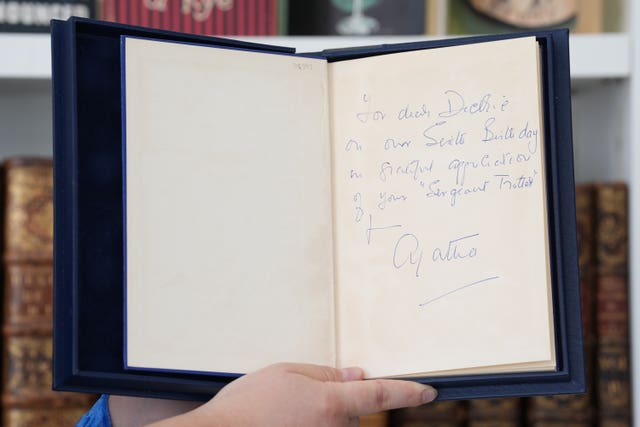 OUNCED
Rye
For dear Dickie
on our Sixth Birthday
in grateful appreciation
of your "Sergeant Trotter"
Agatha